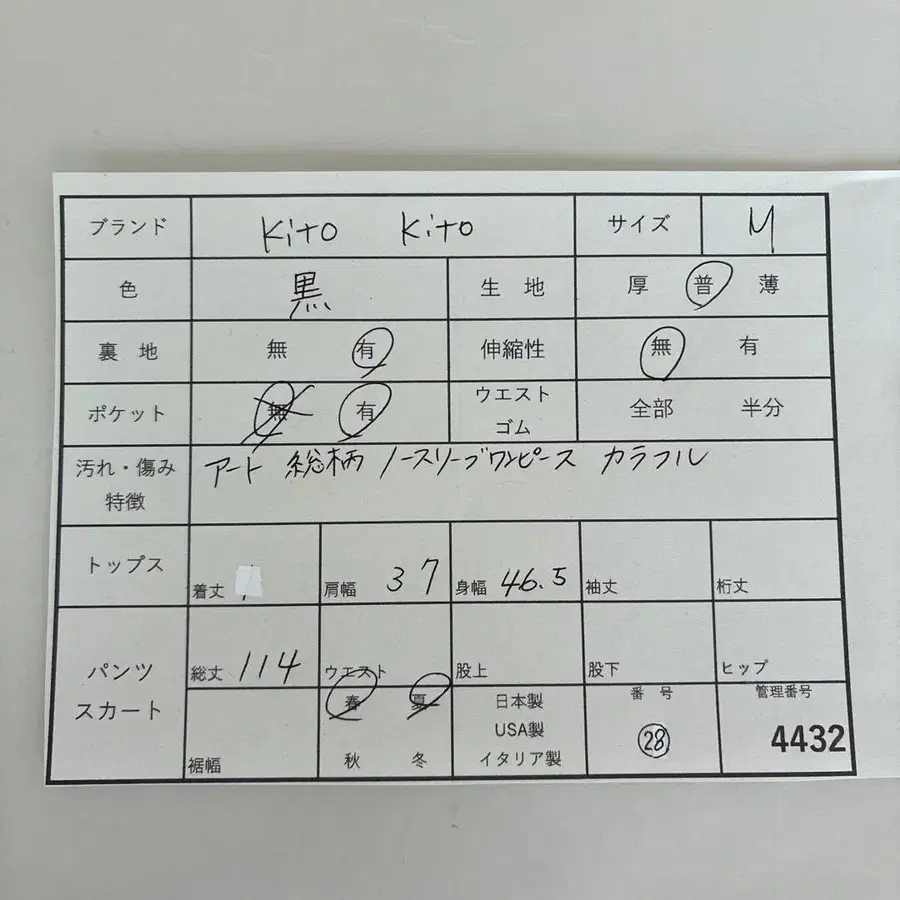 ブランド Kito Kito サイズ M
色 黒 生地 厚 普 薄
裏地 無 有 伸縮性 無 有
ポケット 無 有 ウエスト ゴム 全部 半分
汚れ・傷み 特徴 アート 総柄 ノースリーブワンピース カラフル
トップス 着丈 肩幅 37 身幅 46.5 袖丈 裄丈
パンツ スカート 総丈 114 ウエスト 股上 股下 ヒップ
裾幅 春 夏 日本製 番号 管理番号
USA製 28 4432
秋 冬 イタリア製